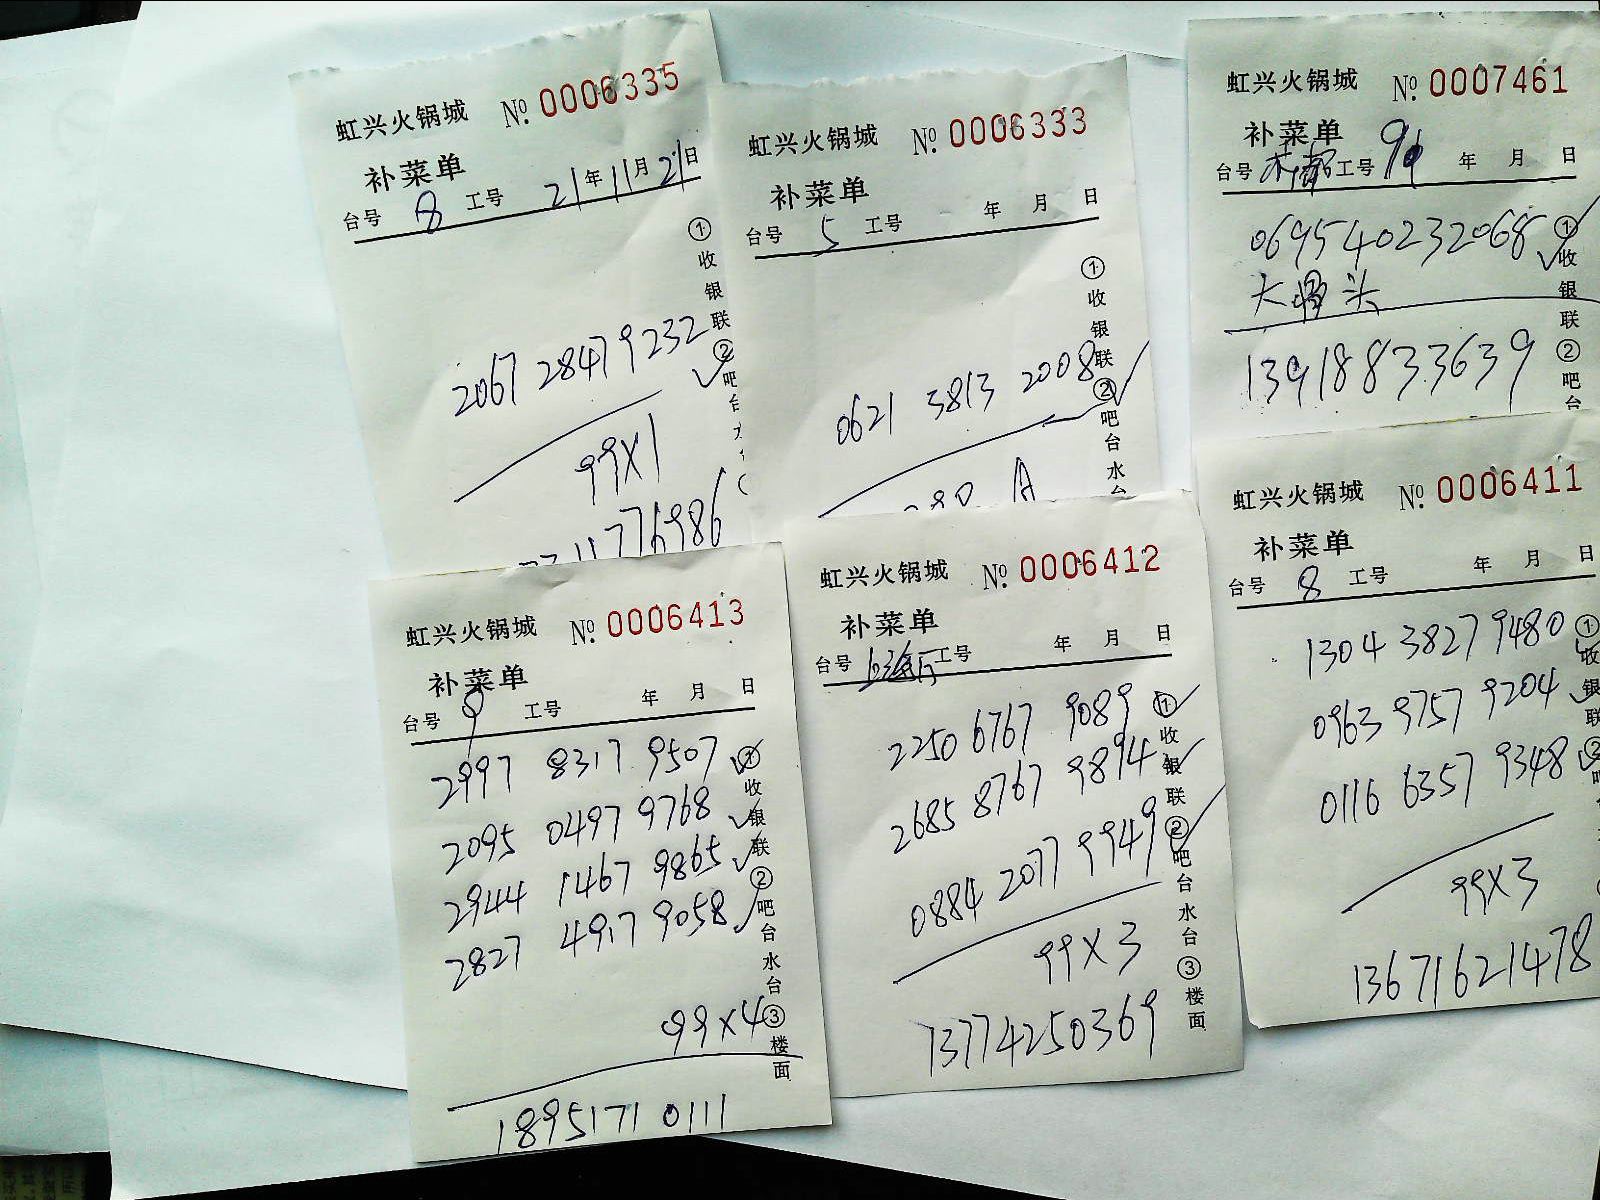 虹兴火锅城 No. 0006335
补菜单
台号 8 工号 21年11月21日
2067 2847 9232
99X1
11776986
①收银联②吧台
虹兴火锅城 No. 0006333
补菜单
台号 5 工号 年 月 日
0621 3813 2008
①收银联②吧台水台
虹兴火锅城 No. 0007461
补菜单
台号 工号 年 月 日
069540232068
大骨头
13918833639
①收银联②吧台
虹兴火锅城 No. 0006413
补菜单
台号 9 工号 年 月 日
2997 8317 9507
2095 0497 9768
2944 1467 9865
2827 4917 9058
99X4
18951710111
①收银联②吧台水台③楼面
虹兴火锅城 No. 0006412
补菜单
台号 工号 年 月 日
2250 6767 9089
2685 8767 9894
0884 2077 9949
99X3
13774250369
①收银联②吧台水台③楼面
虹兴火锅城 No. 0006411
补菜单
台号 8 工号 年 月 日
1304 3827 9480
0963 9757 9204
0116 6357 9348
99X3
13671621478
①收银联②吧